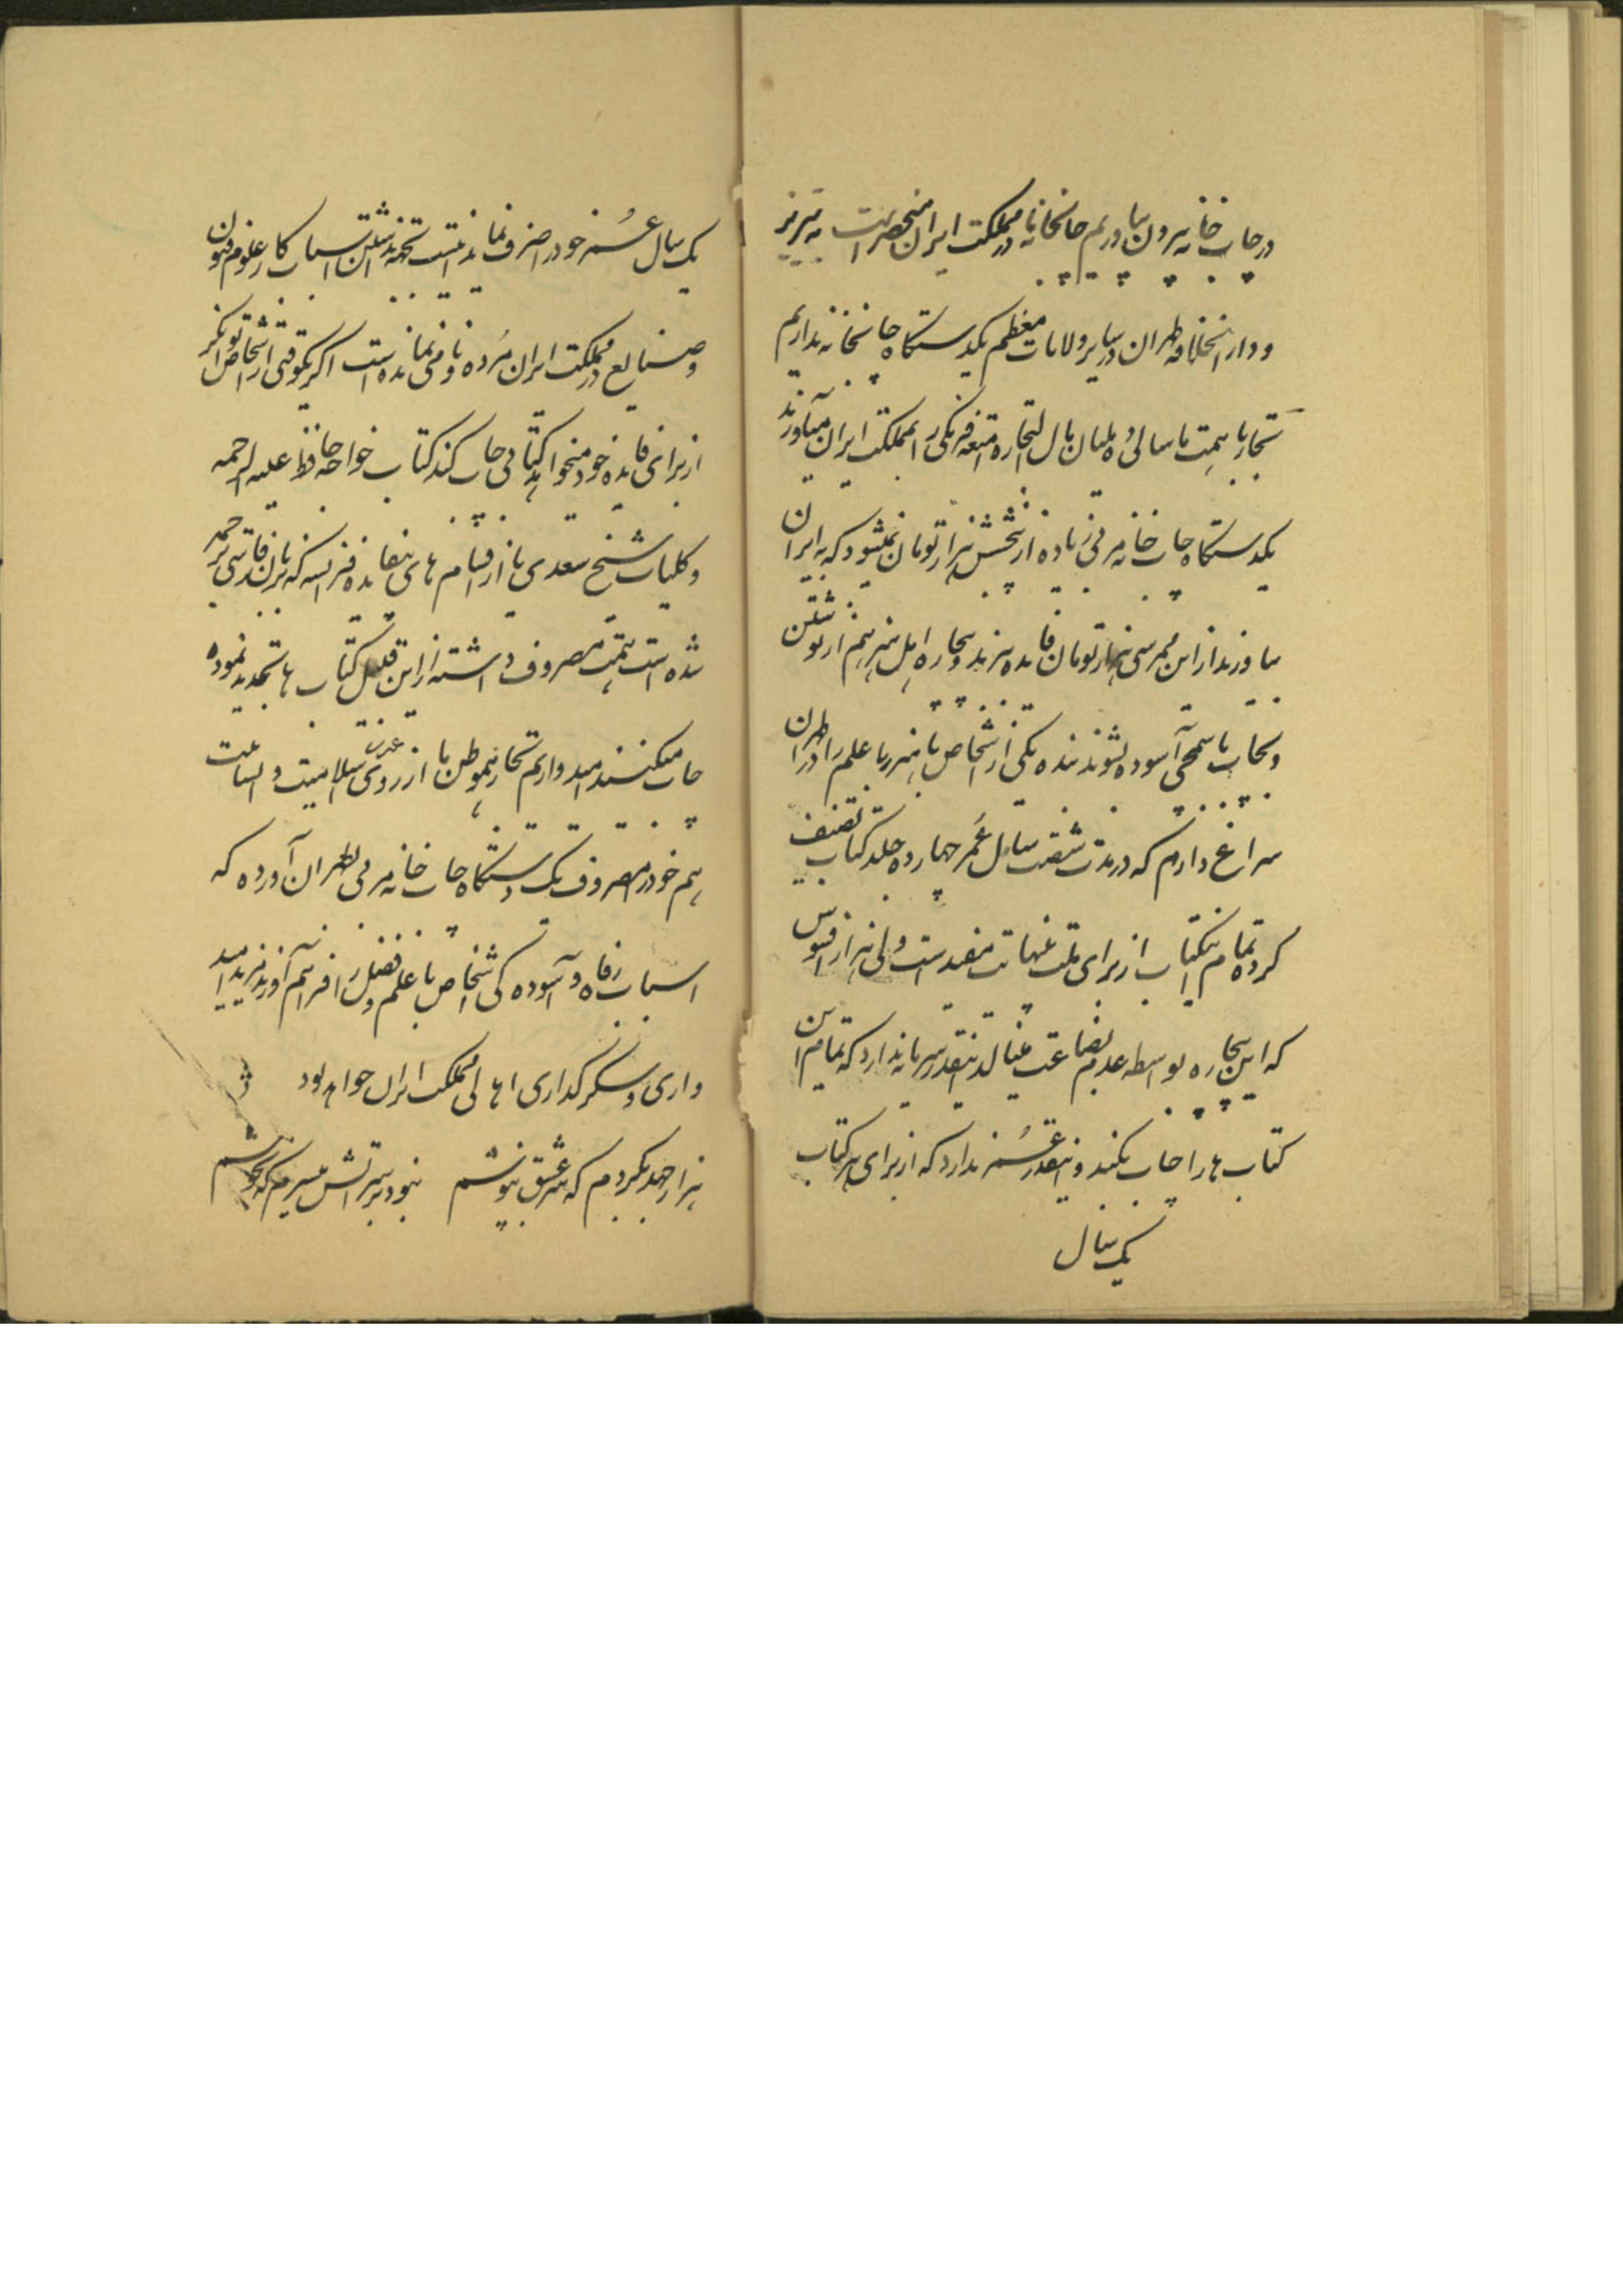 در چاپ خانه بیرون بیاوریم چاپخانه در مملکت ایران منحصر است به تبریز
و دار الخلافه طهران در سایر ولایات معظم یکدستگاه چاپخانه نداریم
تجار با همت ما سالی ده ملیان مال التجاره امتعه فرنگی را بمملکت ایران میآورند
یکدستگاه چاپ خانه سربی زیاده از شش هزار تومان نمیشود که به ایران
بیاورند از این ممر سی هزار تومان فایده ببرند و بیچاره اهل هنر هم از نوشتن
و چاپ باسمچی آسوده بشوند بنده یکی از اشخاص با هنر با علم را در طهران
سراغ دارم که در مدت شصت سال عمر چهارده جلد کتاب تصنیف
کرده تمام اینکتاب از برای ملت بنهایت مفید است ولی هزار افسوس
که این بیچاره بواسطه عدم بضاعت عیال اینقدر سرمایه ندارد که تمام این
کتاب ها را چاپ بکند و اینقدر عمر ندارد که از برای هر کتاب
یک سال
یک سال عمر خود را صرف نماید اینست که بجهة نداشتن اسباب کار علوم و فنون
و صنایع در مملکت ایران مرده و نامی نمانده است اگر یکوقتی از اشخاص توانگر
از برای فایده خود میخواهد کتابی چاپ کند کتاب خواجه حافظ علیه الرحمه
و کلیات شیخ سعدی یا از اقسام های بیفایده فرانسه که بزبان فارسی ترجمه
شده است همت مصروف داشته از این قبیل کتاب ها تجدید نموده
چاپ میکنند امیدواریم تجار هموطن ما از روی غیرت اسلامیت و انسانیت
هم خود را مصروف یک دستگاه چاپ خانه سربی بطهران آورده که
اسباب رفاه و آسوده گی اشخاص با علم و فضل را فراهم آورند مزید امید
واری و شکر گذاری اهالی مملکت ایران خواهد بود
هزار جهد بکردم که سر عشق بپوشم نبود بر سر آتش میسرم که نجوشم